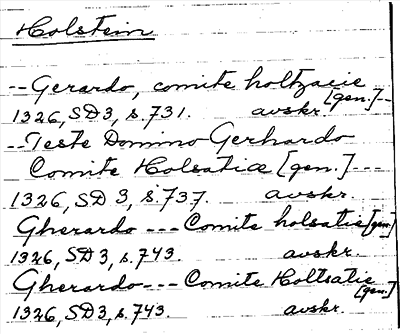 Holstein
--Gerardo, comite holtzacie [gen.]--
1326, SD3, s.731. avskr.
--Teste Domino Gerhardo
Comite Holsatiæ [gen.]---
1326, SD 3, s.737. avskr.
Gherardo --- Comite holsatie [gen.]
1326, SD3, s.743. avskr.
Gherardo--- Comite Holtsatie [gen.]
1326, SD3, s.743. avskr.